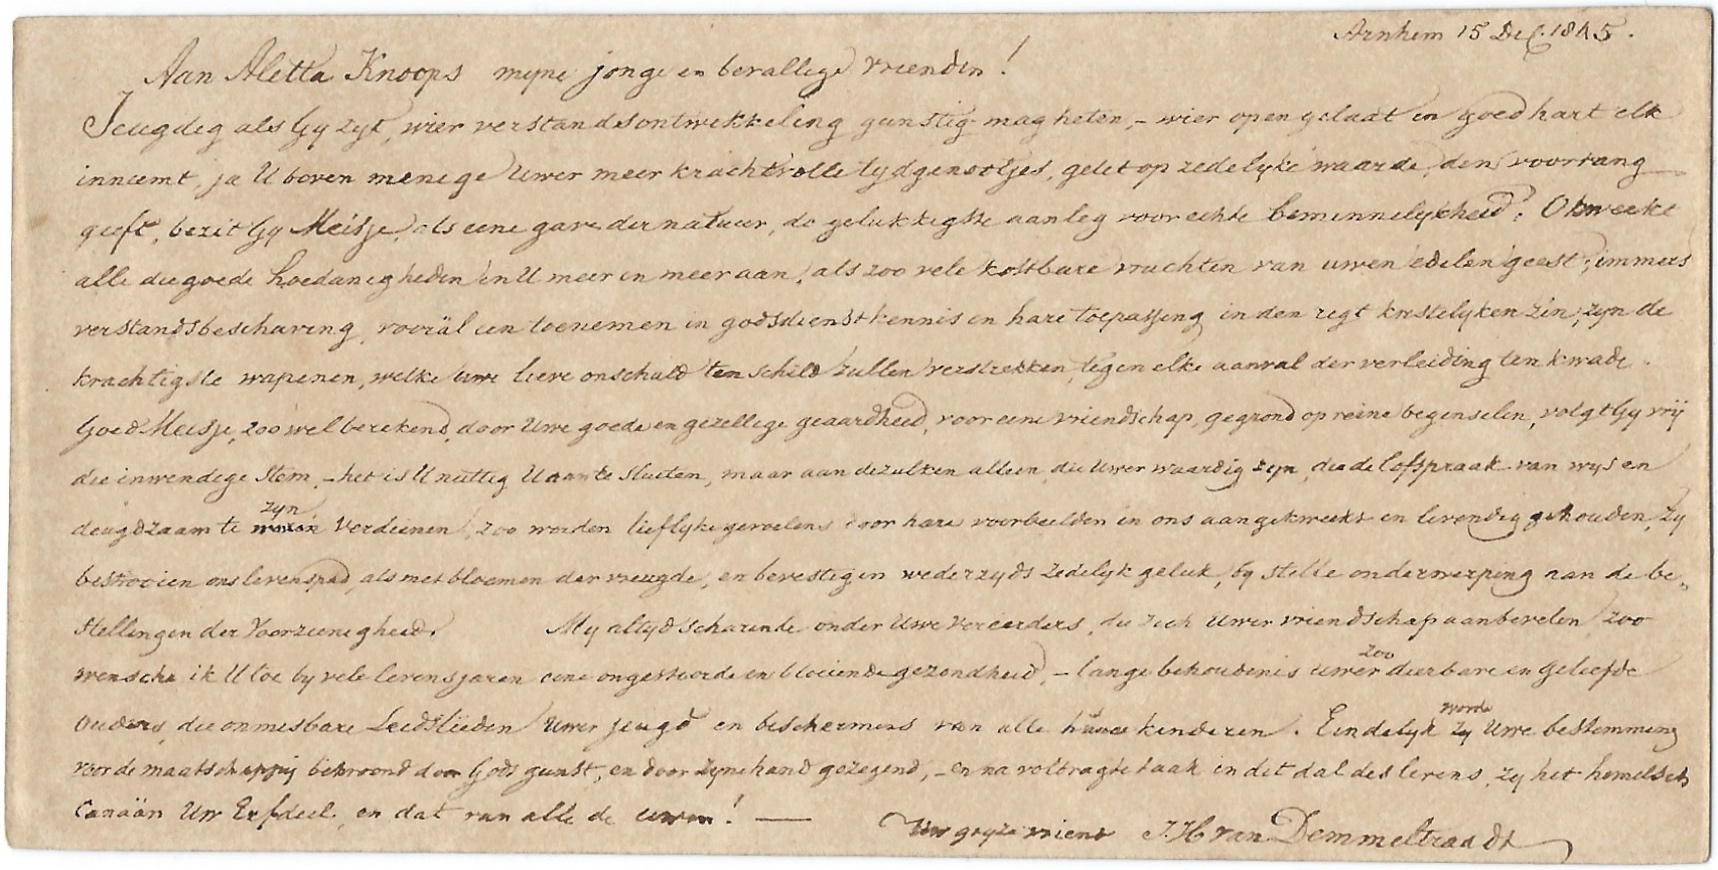 Arnhem 15 Dec. 1845.
Aan Aletta Knoops myne jonge en bevallige vriendin!
Jeugdig als Gy zyt, wier verstandsontwikkeling gunstig mag heten, – wier open gelaat en goed hart elk
inneemt, ja U boven menige Uwer meer krachtvolle tydgenootjes, gelet op zedelyke waarde, den voorrang
geeft, bezit Gy Meisje, als eene gave der natuur, de gelukkigste aanleg voor echte beminnelykheid! O kweeke
alle die goede hoedanigheden in U meer en meer aan, als zoo vele kostbare vruchten van uwen edelen geest; immers
verstandsbeschaving, vooräl een toenemen in godsdienstkennis en hare toepassing in den regt kristelyken zin, zyn de
krachtigste wapenen, welke uwe lieve onschuld ten schild zullen verstrekken, tegen elke aanval der verleiding ten kwade.
Goed Meisje, zoo wel berekend, door Uwe goede en gezellige geaardheid, voor eene vriendschap, gegrond op reine beginselen, volgt Gy vrij
die inwendige stem, – het is U nuttig U aan te sluiten, maar aan dezulken alleen, die Uwer waardig zyn, die de lofspraak van wys en
deugdzaam te zyn verdienen! zoo worden lieflyke gevoelens door hare voorbeelden in ons aangekweekt en levendig gehouden, Zy
bestrooien ons levenspad, als met bloemen der vreugde, en bevestigen wederzyds zedelyk geluk, by stille onderwerping aan de be-
stellingen der Voorzienigheid. My altyd scharende onder Uwe vereerders, die zich Uwer vriendschap aanbevelen, zoo
wensche ik U toe by vele levensjaren eene ongestoorde en bloeiende gezondheid, – lange behoudenis uwer zoo dierbare en geliefde
Ouders, die onmisbare Leidslieden Uwer jeugd en beschermers van alle hunne kinderen. Eindelyk worde Uwe bestemming
voor de maatschappij bekroond door Gods gunst, en door zyne hand gezegend, – en na voldragte taak in dit dal des levens, zy het hemelsch
Canaän Uw Erfdeel, en dat van alle de uwen! —
Uw gryze vriend J. H van Demmeltraadt